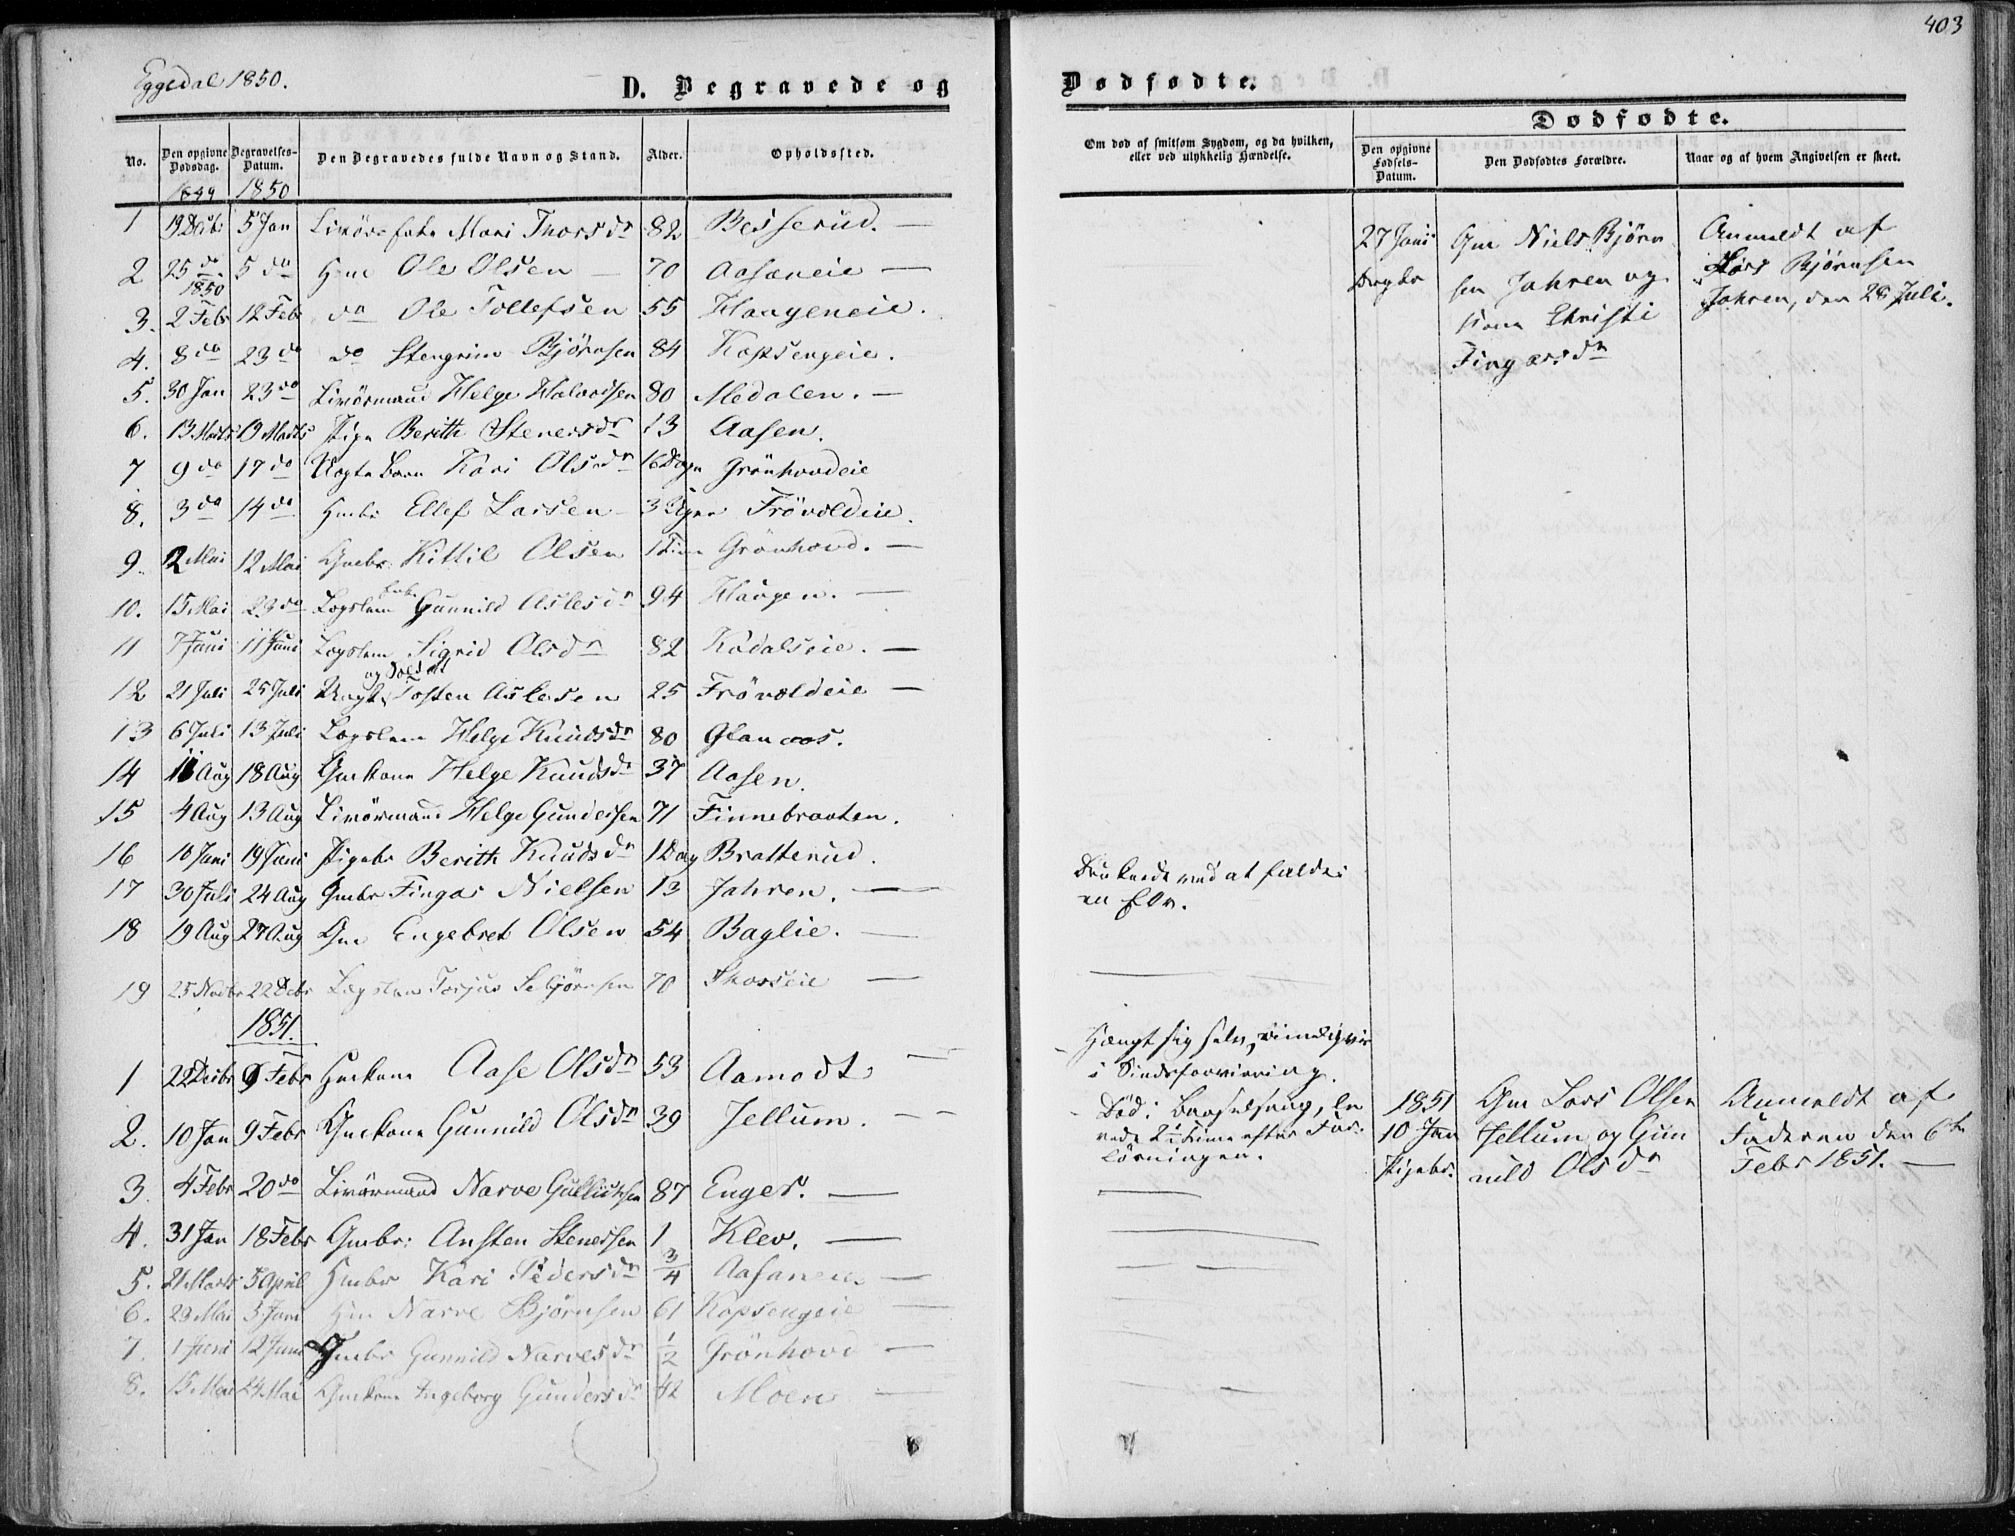 403
Eggedal 1850.
D. Begravede og Dødfødte.
No. Den opgivne Dødsdag. Begravelses-Datum. Den Begravedes fulde Navn og Stand. Alder. Opholdssted.
Om død af smitsom Sygdom, og da hvilken, eller ved ulykkelig Hændelse.
Dødfødte.
Den opgivne Fødsels-Datum. Den Dødfødtes Forældre. Naar og af hvem Angivelsen er skeet.
1849 1850
1 19 Decbr 5 Jan Livörs Enke Mari Thorsdr 82 Besserud. —
2 25 do 5 do Hmd Ole Olsen — 70 Aasaneie —
1850
3. 2 Febr 12 Febr do Ole Tollefsen 55 Haugeneie.
4. 8 do 23 do do Stengrim Björnsen 84 Kopsengeie.
5. 30 Jan 23 do Livörmand Helge Halvorsen 80 Medalen. —
6. 13 Marts 19 Marts Pige Berith Stenersdr 13 Aasen.
7 9 do 17 do Uægte Barn Kari Olsdr 16 Dage Grönhovdeie
8. 3 do 14 do Hmbr Ellef Larsen — 3 Uger Frövoldeie.
9. 12 Mai 12 Mai Gmbr. Kittil Olsen 1 Time Grönhovd. —
10. 15 Mai 23 do Lægslem Enke Gunnild Aslesdr 94 Haugen. —
11 7 Juni 11 Juni Lægslem Sigrid Olsdr 82 Kodalseie. —
12 21 Juli 25 Juli Ungk. og Soldat Tosten Aslesen 25 Frövoldeie —
13 6 Juli 13 Juli Lægslem Helge Knudsdr 80 Glanaas.
14 11 Aug 18 Aug Gmkone Helge Knudsdr 37 Aasen.
15 4 Aug 13 Aug Livörmand Helge Gundersen 71 Finnebraaten.
16 18 Juni 19 Juni Pigebr Berith Knudsdr 1 Dag Bratterud.
17 30 Juli 24 Aug Gmbr Fingar Nielsen 13 Jahren. —
18 19 Aug 27 Aug Gm Engebret Olsen 54 Baglie. —
19 25 Novbr 22 Debr Lægslem Torjus Sebjörnsen 70 Skorseie —
1851.
1 22 Decbr 9 Febr Hmkone Aase Olsdr 53 Aamodt.
2. 10 Jan 9 Febr Gmkone Gunnild Olsdr 39 Jellum.
3. 4 Febr 20 do Livörmand Narve Gulliksen 87 Enger. —
4. 31 Jan 18 Febr Gmbr: Ansten Stenersen 1 Klev. —
5. 21 Marts 5 April Hmbr Kari Pedersdr 3/4 Aasaneie —
6. 29 Mai 3 Juni Hm Narve Björnsen 61 Kopsengeie —
7. 1 Juni 12 Juni Gmbr Gunnild Narvesdr 1/2 Grönhovd —
8. 15 Mai 24 Mai Gmkone Ingeborg Gundersdr 42 Moen —
Druknede ved at falde i
en Elv.
Hængt sig selv, rimeligvis
i Sindsforvirring.
Död i Barselseng, le
vede 2 Timer efter For
lösningen.
27 Juni
Dreng br
Gm Niels Björn
sen Jahren og
Kone Christi
Fingarsdr
Anmeldt af
Lars Björnsen
Jahren, den 28 Juli.
1851
10 Jan
Pigebr.
Gm Lars Olsen
Jellum og Gun
nild Olsdr
Anmeldt af
Faderen den 6te
Febr 1851. —